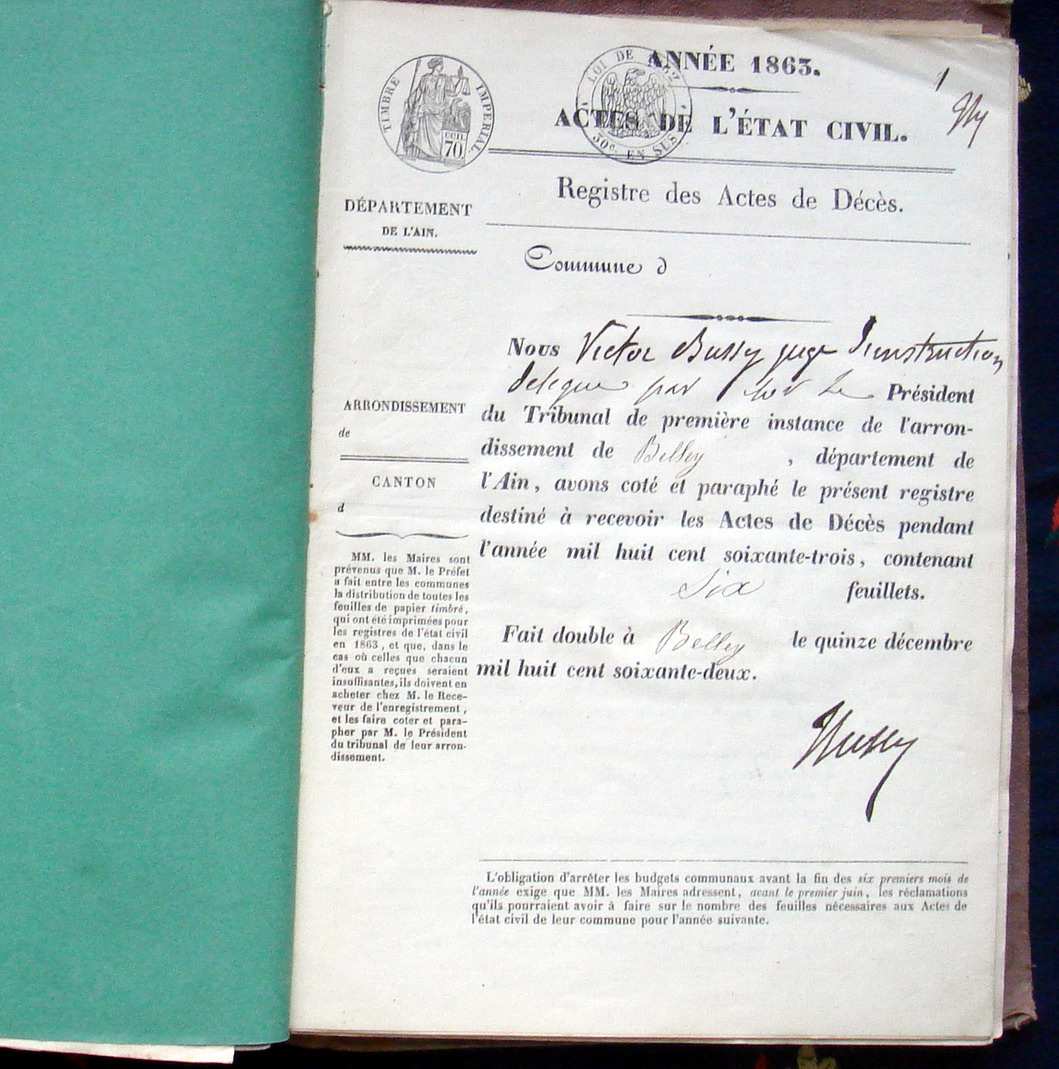 TIMBRE IMPERIAL
COD.
70
LOI DE
50c. EN SUS
ANNÉE 1863.
1
ACTES DE L'ÉTAT CIVIL.
Registre des Actes de Décès.
DÉPARTEMENT
DE L'AIN.
Commune d
ARRONDISSEMENT
de
CANTON
d
MM. les Maires sont
prévenus que M. le Préfet
a fait entre les communes
la distribution de toutes les
feuilles de papier timbré,
qui ont été imprimées pour
les registres de l'état civil
en 1863, et que, dans le
cas où celles que chacun
d'eux a reçues seraient
insuffisantes, ils doivent en
acheter chez M. le Rece-
veur de l'enregistrement,
et les faire coter et para-
pher par M. le Président
du tribunal de leur arron-
dissement.
Nous Victor Bussy juge d'instruction
délégué par Président
du Tribunal de première instance de l'arron-
dissement de Belley, département de
l'Ain, avons coté et paraphé le présent registre
destiné à recevoir les Actes de Décès pendant
l'année mil huit cent soixante-trois, contenant
Six feuillets.
Fait double à Belley le quinze décembre
mil huit cent soixante-deux.
Bussy
L'obligation d'arrêter les budgets communaux avant la fin des six premiers mois de
l'année exige que MM. les Maires adressent, avant le premier juin, les réclamations
qu'ils pourraient avoir à faire sur le nombre des feuilles nécessaires aux Actes de
l'état civil de leur commune pour l'année suivante.